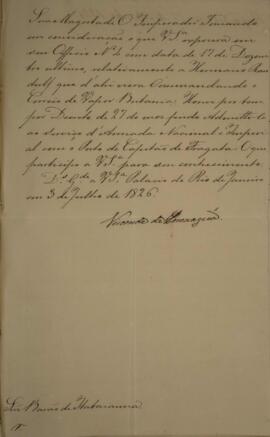 Sua Magestade O Imperador Tomando
em consideração o que V. Sª expusera em
seu Officio Nº 2 com data de 17 de Dezem-
bro ultimo, relativamente a Hermano
que d'ahi viera Commandando o
Correio de Vapor Britania: Houve por bem
por Decreto de 27 do mez findo Admittil-o
ao serviço d'Armada Nacional e Imperi-
al com o Posto de Capitão de Fragata. O que
participo a V. Sª para seu conhecimento.
Ds. Gde. a V. Sª Palacio do Rio de Janeiro
em 3 de Julho de 1826.
Visconde de
Snr. Barão de Itabaiana